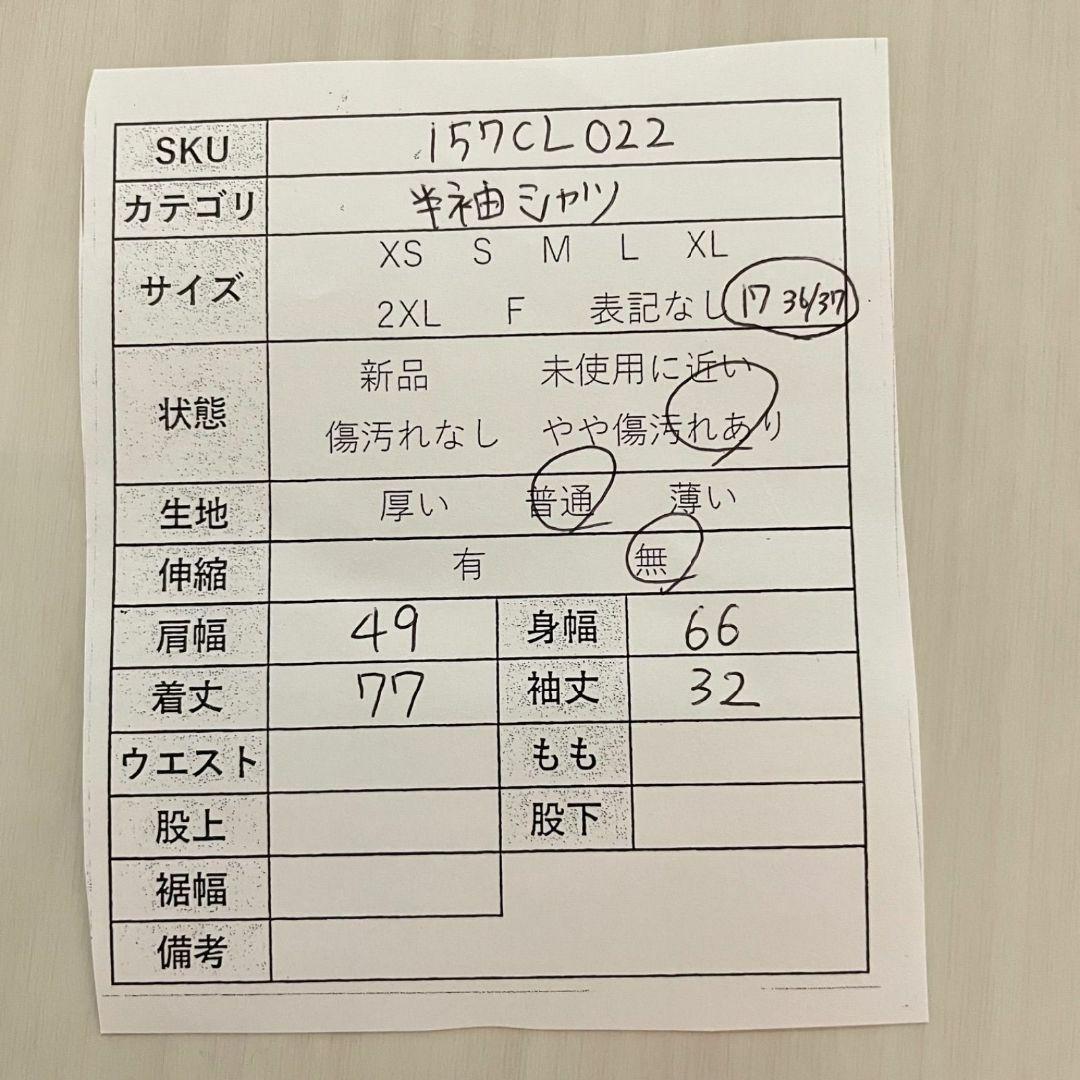 SKU 157CL022
カテゴリ 半袖シャツ
サイズ XS S M L XL
2XL F 表記なし 17 36/37
状態 新品 未使用に近い
傷汚れなし やや傷汚れあり
生地 厚い 普通 薄い
伸縮 有 無
肩幅 49 身幅 66
着丈 77 袖丈 32
ウエスト もも
股上 股下
裾幅
備考